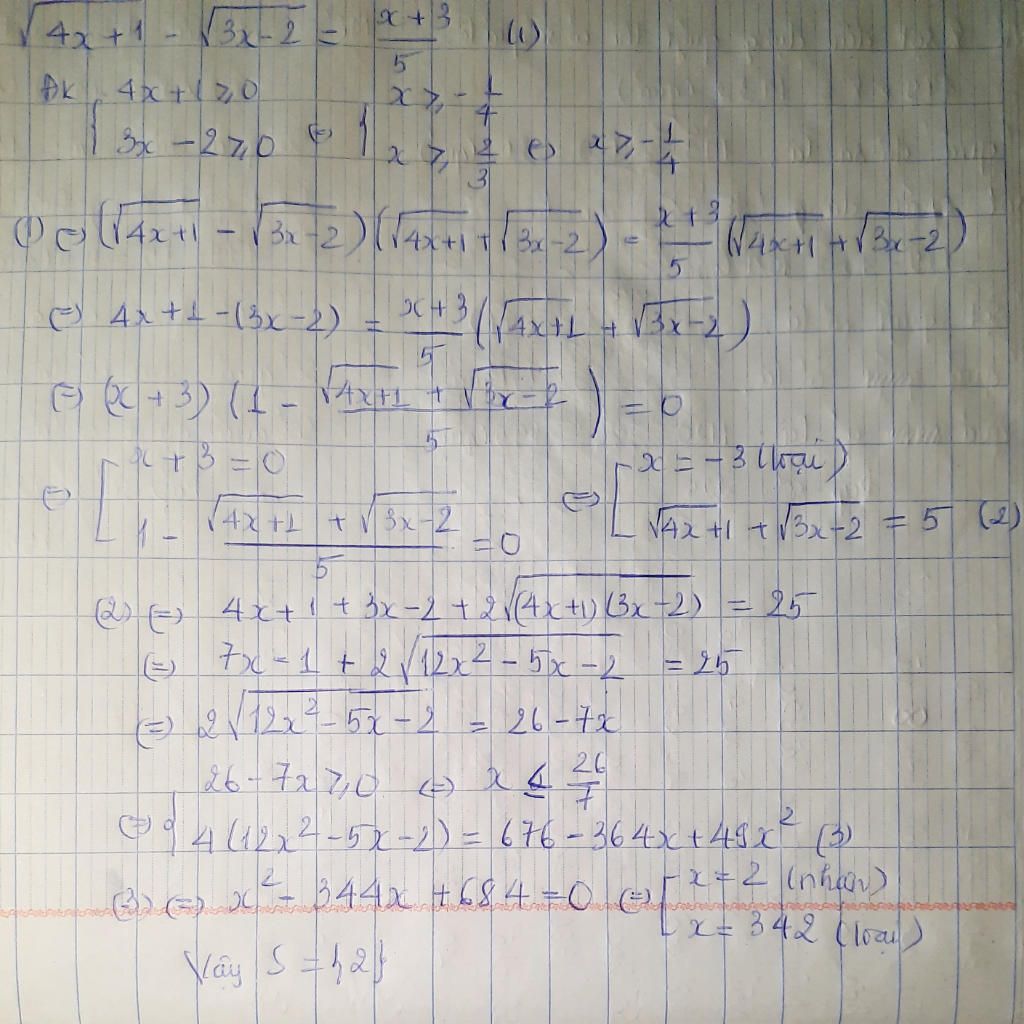 √(4x+1) - √(3x-2) = (x+3)/5 (1)
ĐK { 4x+1 ≥ 0 ; 3x-2 ≥ 0 ⇔ { x ≥ -1/4 ; x ≥ 2/3 ⇔ x ≥ -1/4
(1) ⇔ (√(4x+1) - √(3x-2))(√(4x+1) + √(3x-2)) = (x+3)/5 (√(4x+1) + √(3x-2))
⇔ 4x+1-(3x-2) = (x+3)/5 (√(4x+1) + √(3x-2))
⇔ (x+3) (1 - (√(4x+1) + √(3x-2))/5) = 0
⇔ [ x+3 = 0 ; 1 - (√(4x+1) + √(3x-2))/5 = 0 ⇔ [ x = -3 (loại) ; √(4x+1) + √(3x-2) = 5 (2)
(2) ⇔ 4x+1+3x-2+2√((4x+1)(3x-2)) = 25
⇔ 7x-1+2√(12x²-5x-2) = 25
⇔ 2√(12x²-5x-2) = 26-7x
⇔ { 26-7x ≥ 0 ⇔ x ≤ 26/7
4(12x²-5x-2) = 676-364x+49x² (3)
(3) ⇔ x²-344x+684 = 0 ⇔ [ x = 2 (nhận) ; x = 342 (loại)
Vậy S = {2}